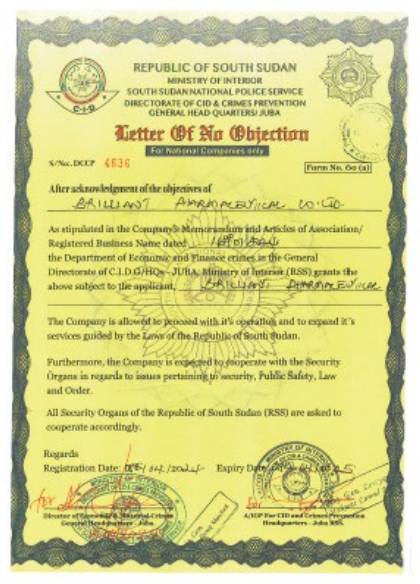 REPUBLIC OF SOUTH SUDAN
MINISTRY OF INTERIOR
SOUTH SUDAN NATIONAL POLICE SERVICE
DIRECTORATE OF CID & CRIMES PREVENTION
GENERAL HEAD QUARTERS/ JUBA
C-I-D
Letter Of No Objection
For National Companies only
S/No. DCCP 4636
Form No. 60 (a)
After acknowledgment of the objectives of
BRILLIANT PHARMACEUTICAL CO. LTD.
As stipulated in the Company's Memorandum and Articles of Association/
Registered Business Name dated
the Department of Economic and Finance crimes in the General
Directorate of C.I.D G/HQs - JUBA, Ministry of Interior (RSS) grants the
above subject to the applicant, BRILLIANT PHARMACEUTICAL
The Company is allowed to proceed with it's operation and to expand it's
services guided by the Laws of the Republic of South Sudan.
Furthermore, the Company is expected to cooperate with the Security
Organs in regards to issues pertaining to security, Public Safety, Law
and Order.
All Security Organs of the Republic of South Sudan (RSS) are asked to
cooperate accordingly.
Regards
Registration Date: /04/2024 Expiry Date
for
Director of Economic & Financial Crimes
General Headquarters - Juba
A/IGP For CID and Crimes Prevention
Headquarters - Juba RSS.